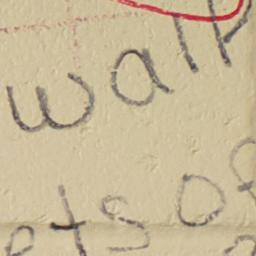 walp
ets of